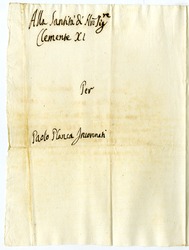 Alla Santità di N̄ro Sig.re
Clemente XI
Per
Paolo Planca Incoronati